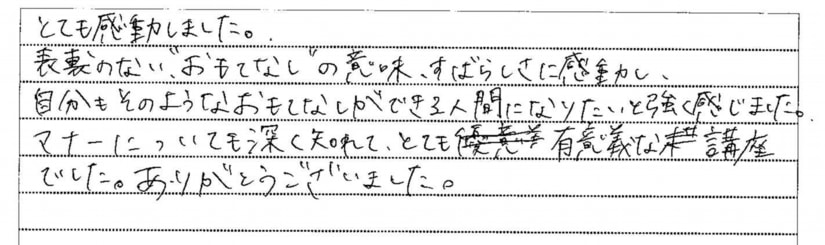 とても感動しました。
表裏のない、"おもてなし"の意味、すばらしさに感動し、
自分もそのようなおもてなしができる人間になりたいと強く感じました。
マナーについても深く知れて、とても有意義な講座
でした。ありがとうございました。